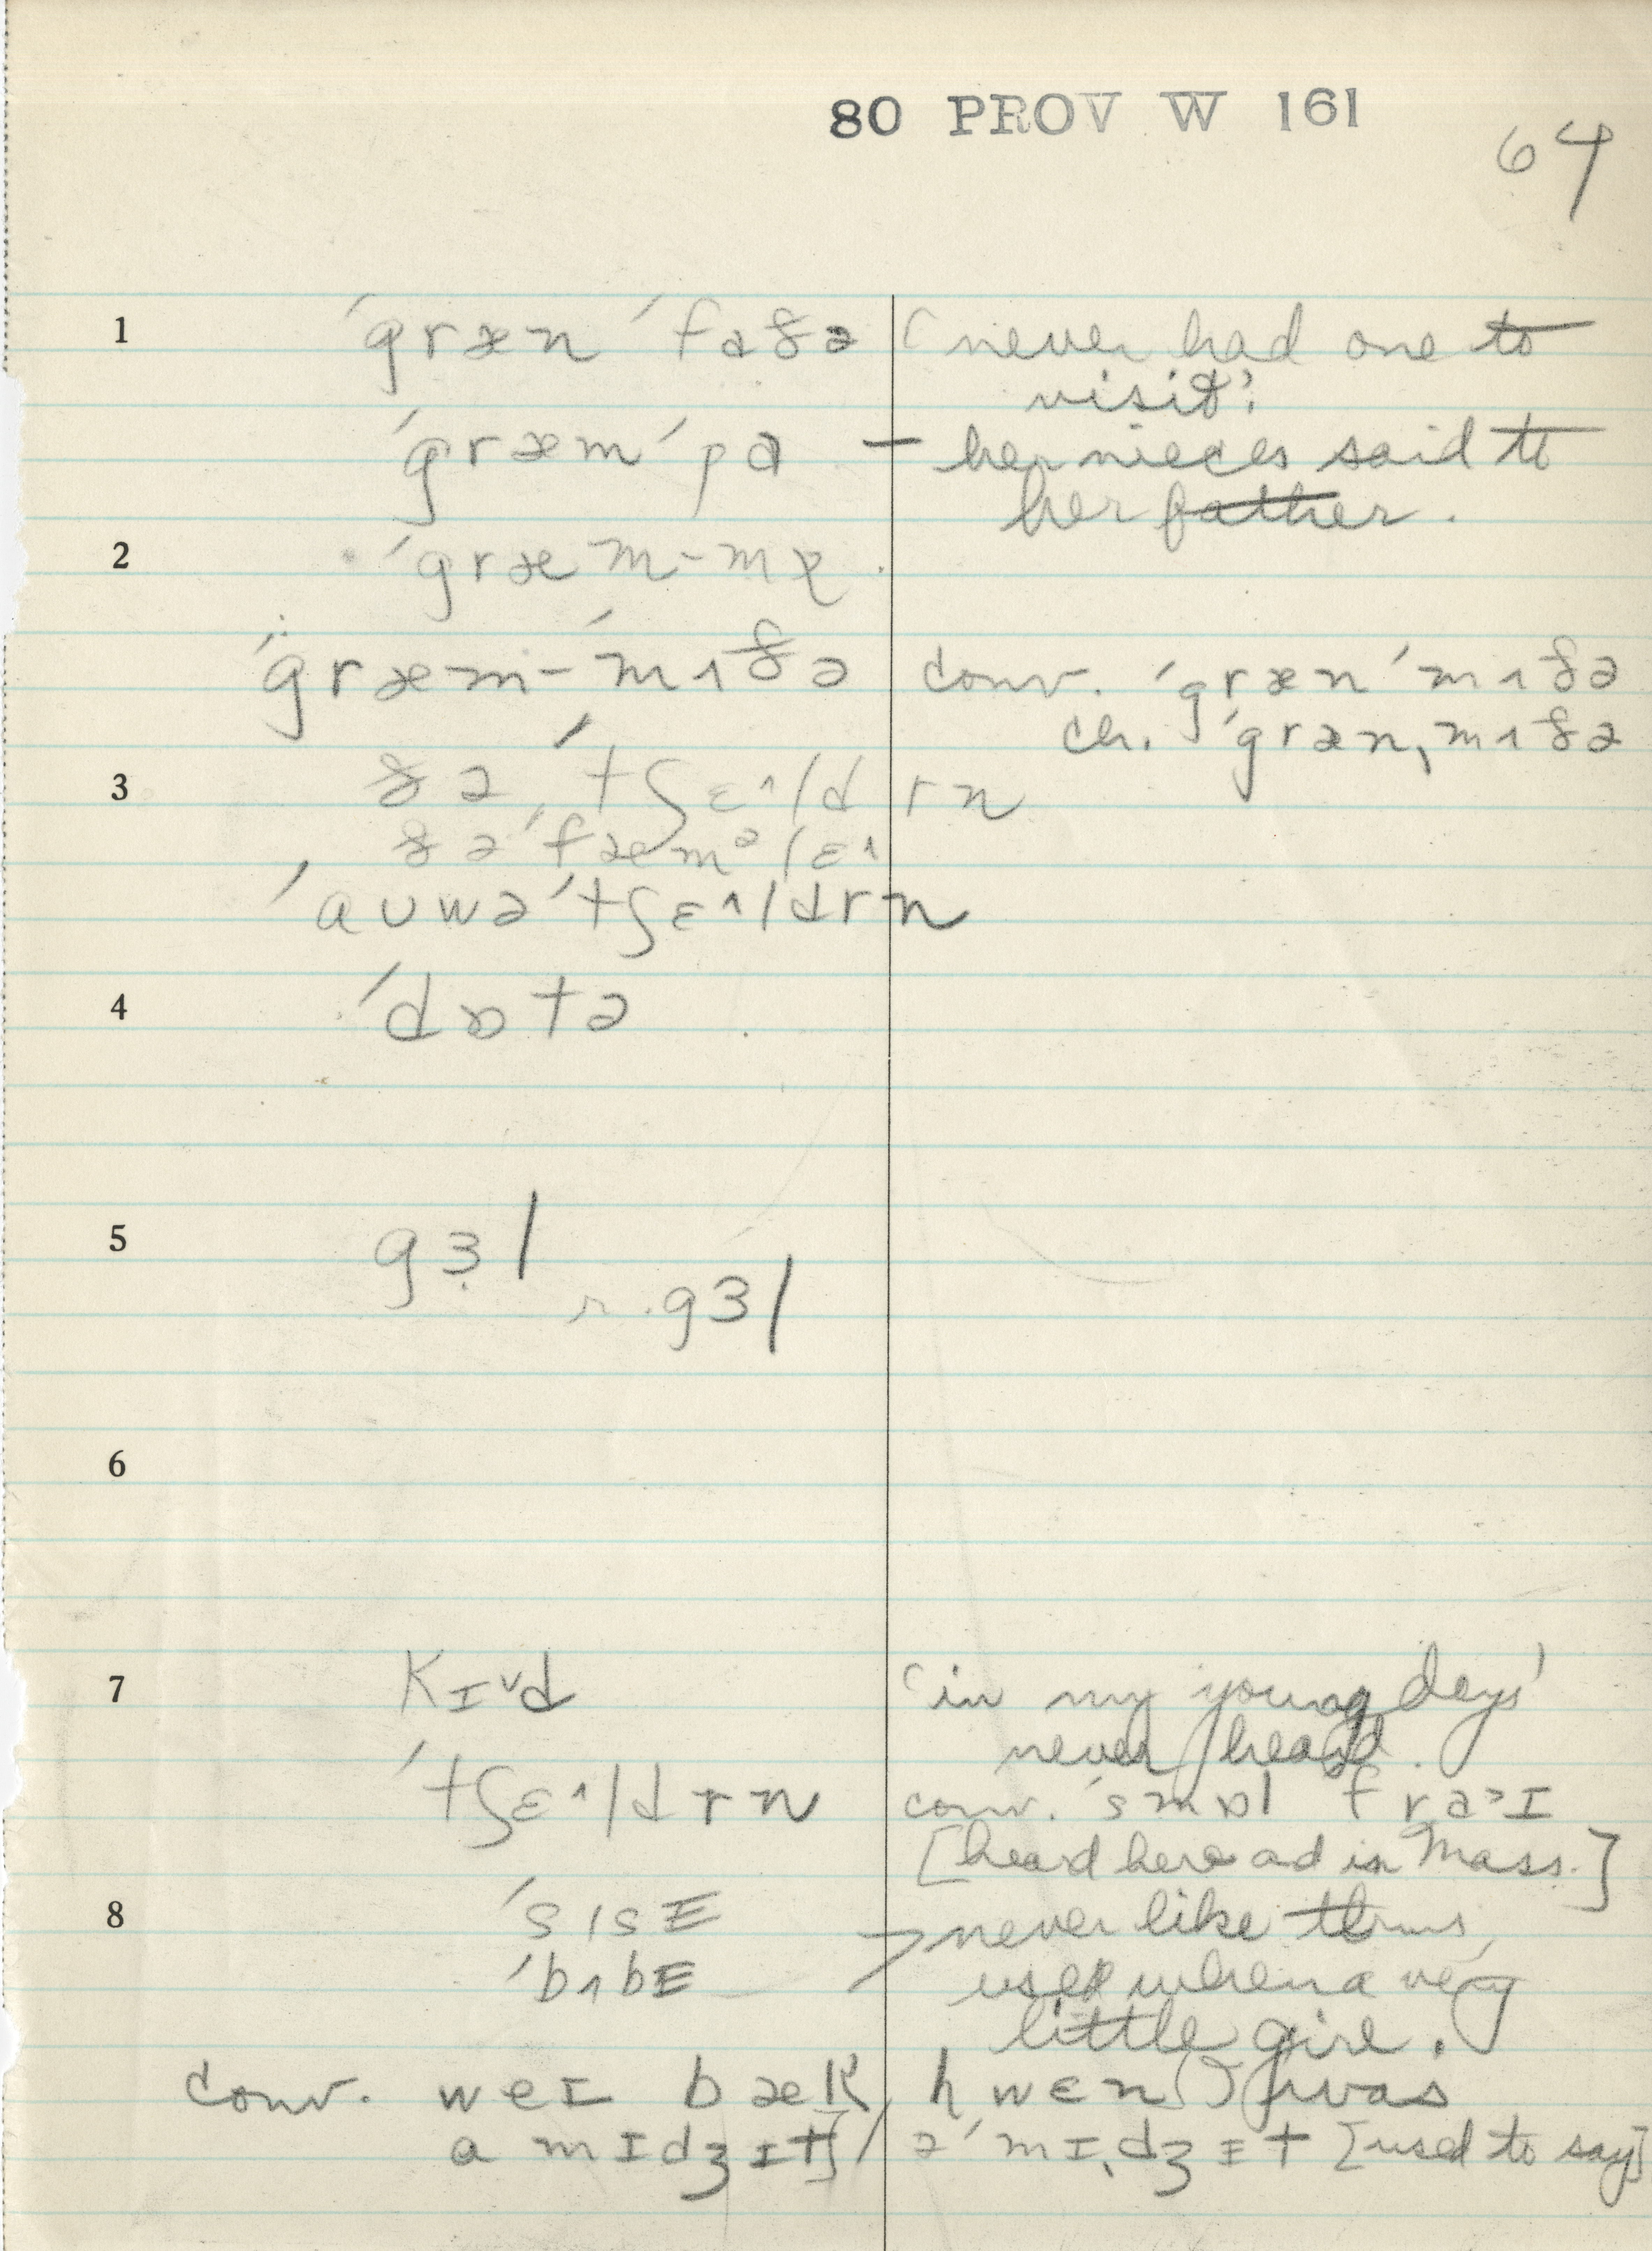 80 PROV W 161
64
1 ˈgræn ˈfaðə ‘never had one to
visit’:
ˈgræmˈpa – her nieces said to
her father.
2 ˈgræm-mə
ˈgræm-ˈmʌðə conv. ˈgrænˈmʌðə
ch. ˈgrænˌmʌðə
3 ðə ˈtʃɛ^ldrn
ðəˈfæmᵊlɛ^
ˈaʊwəˈtʃɛ^ldrn
4 ˈdɒtə
5 gɜl
r. gɜl
6
7 kɪ˅d ‘in my young days’
never heard.
ˈtʃɛ^ldrn conv. ˈsmɒl fra>ɪ
[heard here ad in Mass.]
8 ˈsɪsɪ > never like thms,
ˈbʌbɪ used when a very
little girl.
conv. weɪ bæk hwɛn I was
a mɪdʒɪt / əˈmɪˌdʒɪt [used to say]